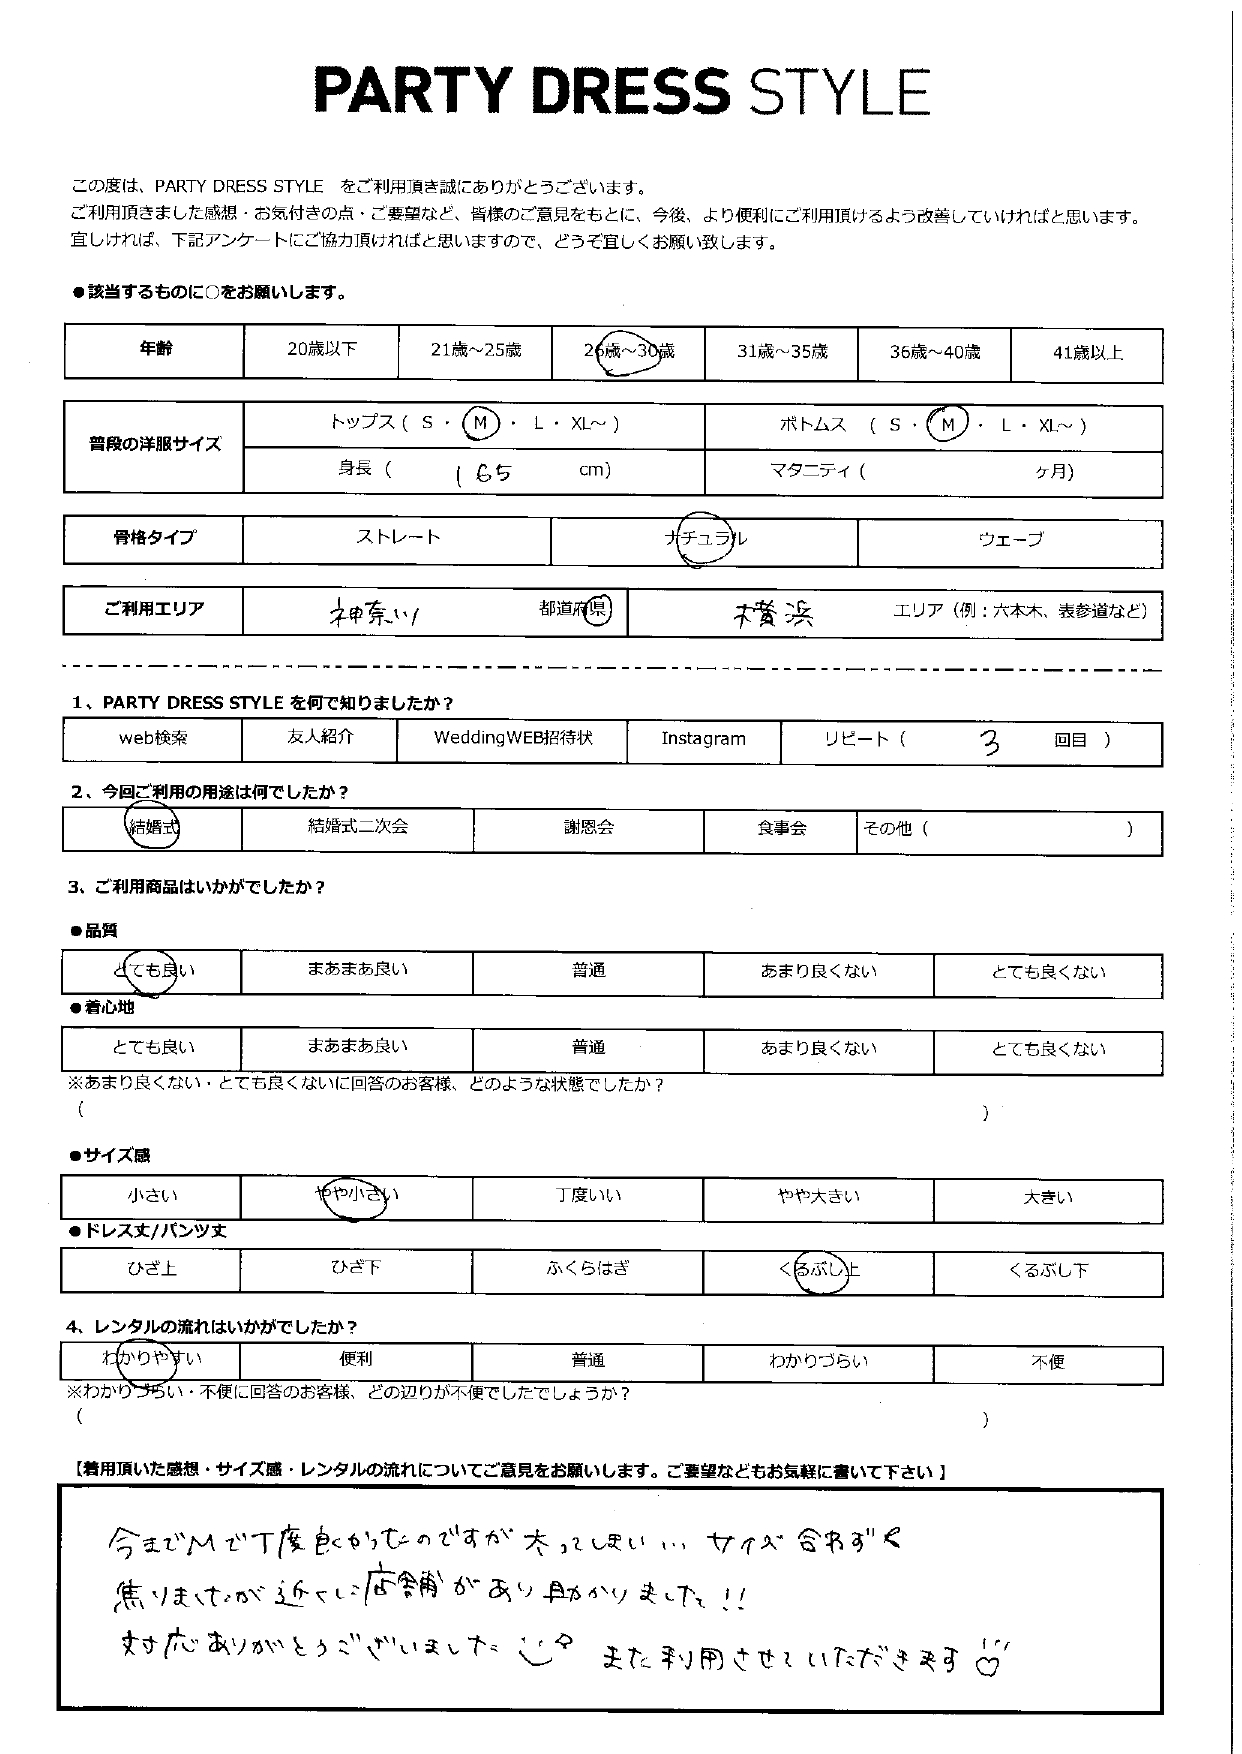 PARTY DRESS STYLE
この度は、PARTY DRESS STYLE をご利用頂き誠にありがとうございます。
ご利用頂きました感想・お気付きの点・ご要望など、皆様のご意見をもとに、今後、より便利にご利用頂けるよう改善していければと思います。
宜しければ、下記アンケートにご協力頂ければと思いますので、どうぞ宜しくお願い致します。
●該当するものに○をお願いします。
年齢 20歳以下 21歳～25歳 26歳～30歳 31歳～35歳 36歳～40歳 41歳以上
普段の洋服サイズ トップス ( S ・ M ・ L ・ XL～ ) ボトムス ( S ・ M ・ L ・ XL～ )
身長 ( 165 cm) マタニティ ( ヶ月)
骨格タイプ ストレート ナチュラル ウェーブ
ご利用エリア 神奈川 都道府県 横浜 エリア（例：六本木、表参道など）
1、PARTY DRESS STYLE を何で知りましたか？
web検索 友人紹介 WeddingWEB招待状 Instagram リピート ( 3 回目 )
2、今回ご利用の用途は何でしたか？
結婚式 結婚式二次会 謝恩会 食事会 その他 ( )
3、ご利用商品はいかがでしたか？
●品質
とても良い まあまあ良い 普通 あまり良くない とても良くない
●着心地
とても良い まあまあ良い 普通 あまり良くない とても良くない
※あまり良くない・とても良くないに回答のお客様、どのような状態でしたか？
( )
●サイズ感
小さい やや小さい 丁度いい やや大きい 大きい
●ドレス丈/パンツ丈
ひざ上 ひざ下 ふくらはぎ くるぶし上 くるぶし下
4、レンタルの流れはいかがでしたか？
わかりやすい 便利 普通 わかりづらい 不便
※わかりづらい・不便に回答のお客様、どの辺りが不便でしたでしょうか？
( )
【着用頂いた感想・サイズ感・レンタルの流れについてご意見をお願いします。ご要望などもお気軽に書いて下さい 】
今までMで丁度良かったのですが 太ってしまい... サイズ 合わず
焦りましたが 近くに店舗があり 助かりました!!
対応ありがとうございました また利用させていただきます